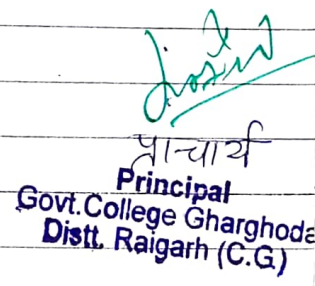 प्राचार्य
Principal
Govt. College Gharghoda
Distt. Raigarh (C.G.)